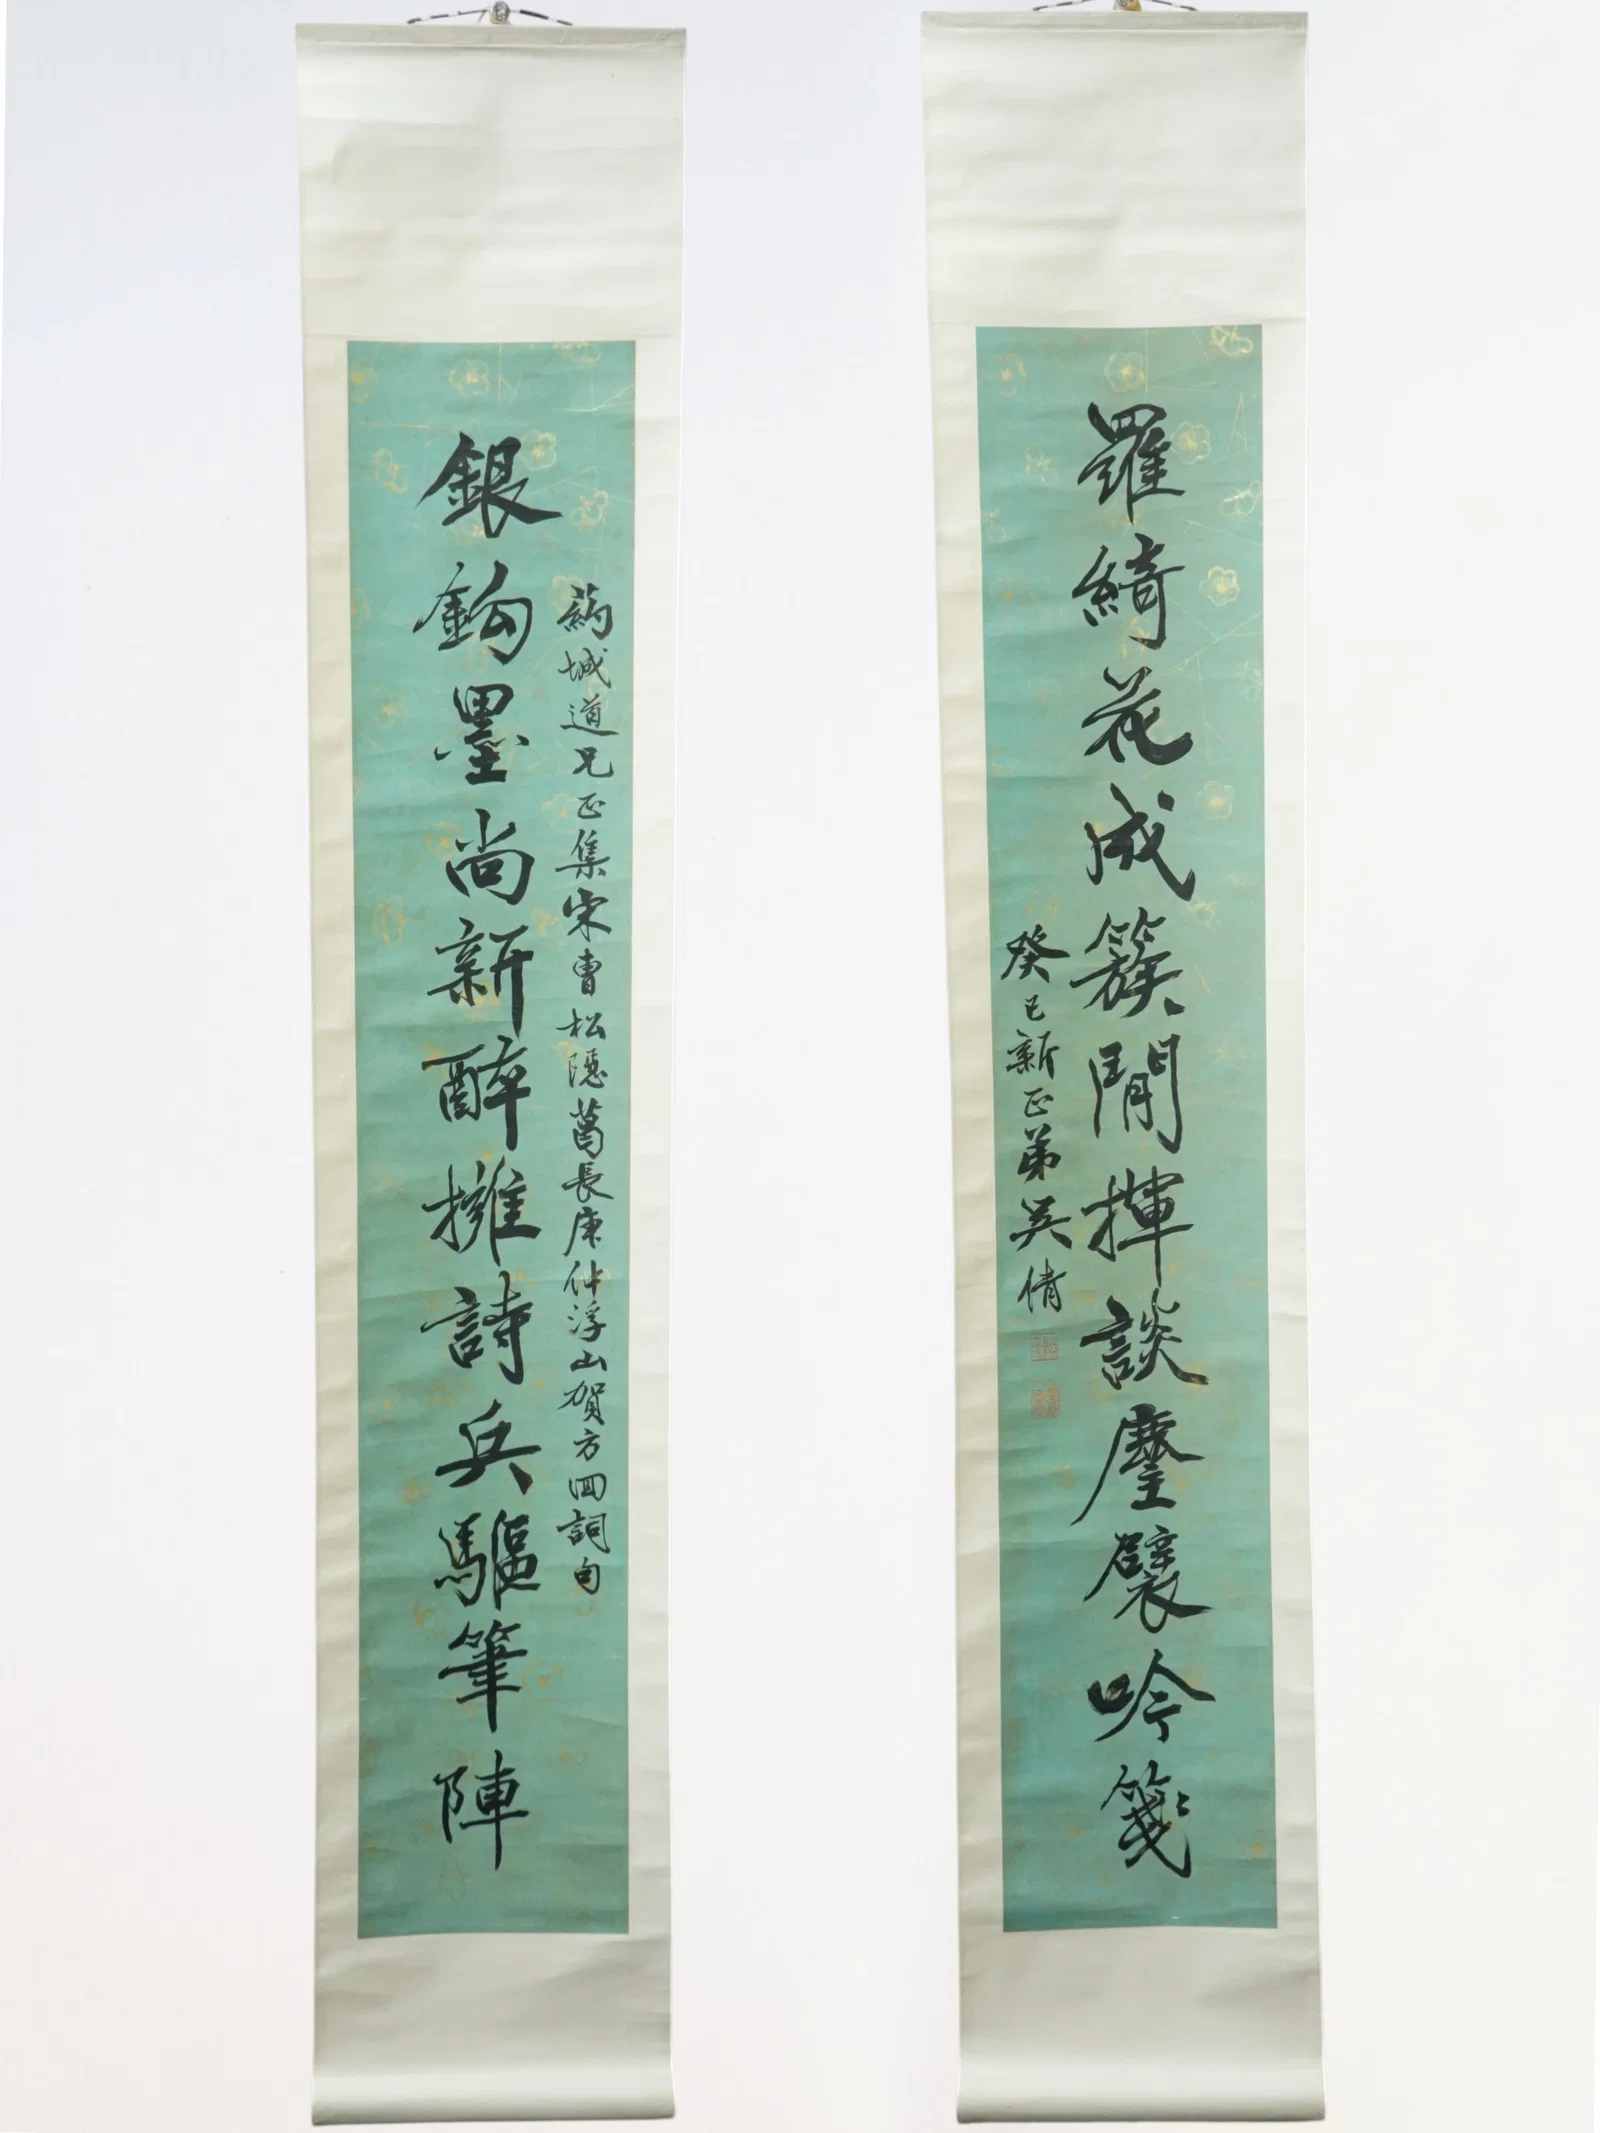 銀鉤墨尚新醉擁詩兵驅筆陣
葯城道兄正集宋曹松隱葛長庚仲浮山賀方回詞句
羅綺花成簇閒揮談麈襞吟箋
癸巳新正弟吳倩